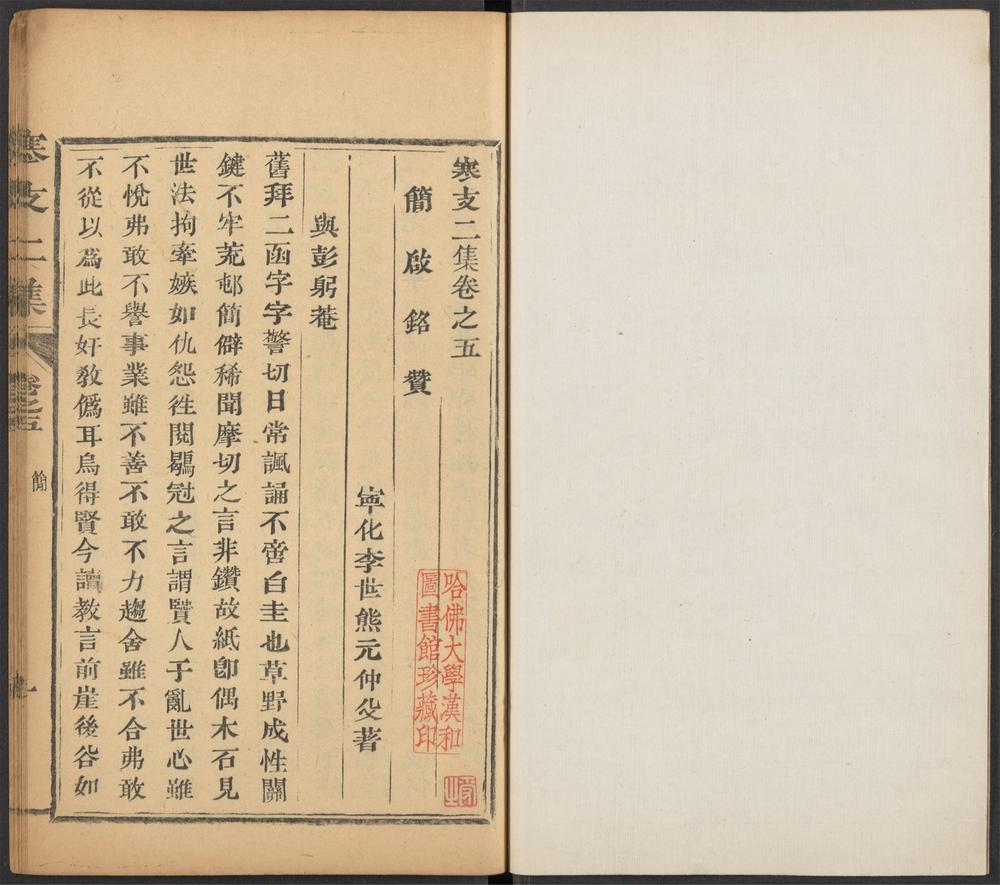 寒支二集卷之五
簡啟銘贊
寧化李世熊元仲父著
與彭躬菴
舊拜二函字字警切日常諷誦不啻白圭也草野成性關
鍵不牢荒邨簡僻稀聞摩切之言非鑽故紙卽偶木石見
世法拘牽嫉如仇怨徃閱鶡冠之言謂賢人于亂世心雖
不悅弗敢不譽事業雖不善不敢不力趨舍雖不合弗敢
不從以爲此長奸敎僞耳烏得賢今讀教言前崖後谷如
哈佛大學漢和
圖書館珍藏印
寒支二集
卷之五
簡
一